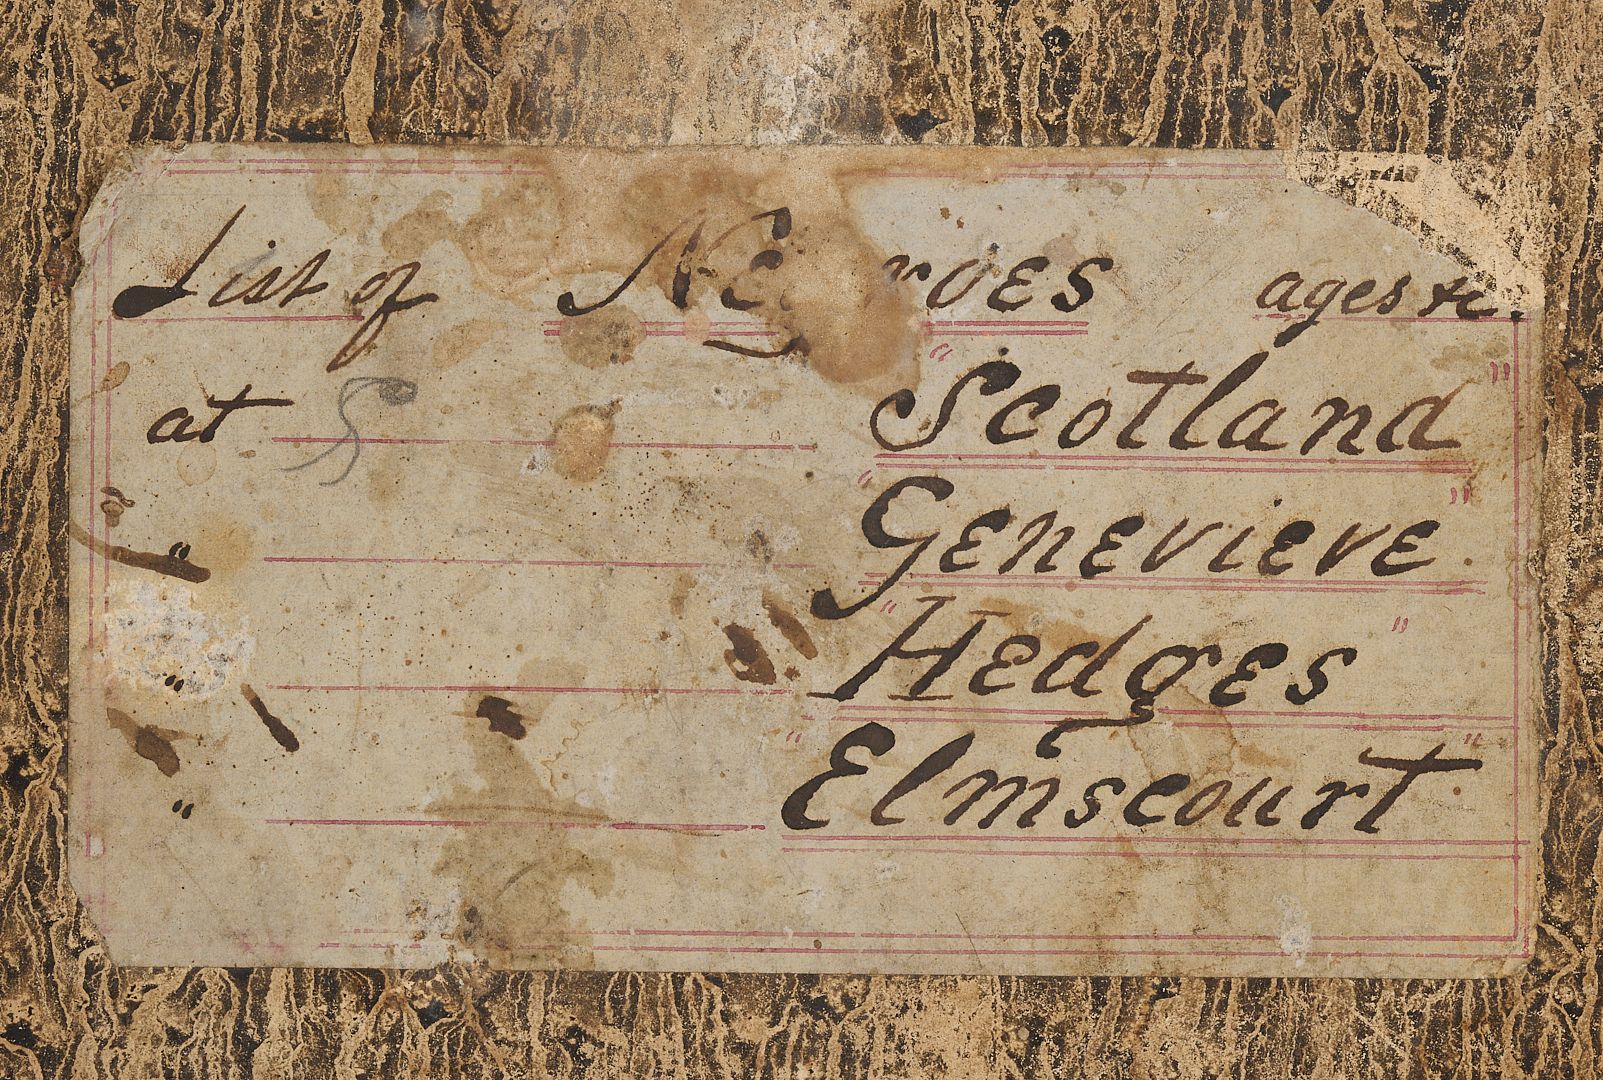 List of Negroes ages &c.
at "Scotland"
" "Genevieve"
" "Hedges"
" "Elmscourt"